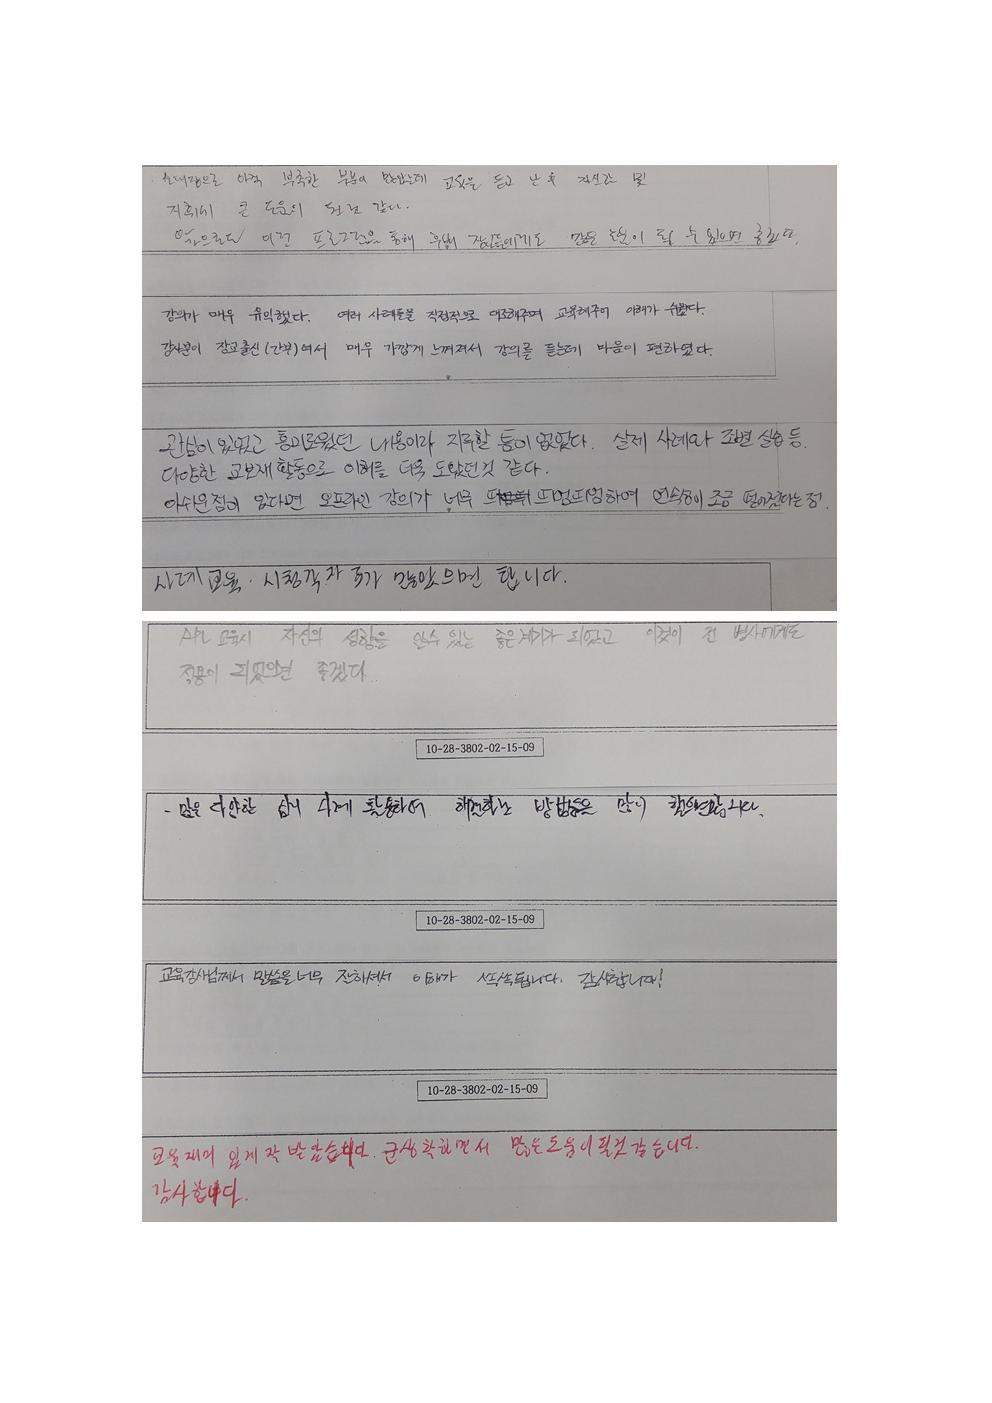 소대장으로 아직 부족한 부분이 많았는데 교육을 듣고 난 후 자신감 및
지휘에 큰 도움이 된 것 같다.
앞으로도 이런 프로그램을 통해 후배 장교들에게도 많은 도움이 될 수 있으면 좋겠다.
강의가 매우 유익했다. 여러 사례들을 직접적으로 대조해주며 교육해주어 이해가 쉬웠다.
강사분이 장교출신(간부)여서 매우 가깝게 느껴져서 강의를 듣는데 마음이 편하였다.
관심이 있었고 흥미로웠던 내용이라 지루할 틈이 없었다. 실제 사례와 조별 실습 등.
다양한 교보재 활동으로 이해를 더욱 도왔던것 같다.
아쉬운점이 있다면 오프라인 강의가 너무 띄엄띄엄하여 연속성이 조금 떨어졌다는 점.
사례교육. 시청각자료가 많았으면 합니다.
교육시 자신의 성향을 알수 있는 좋은계기가 되었고 이것이 전 병사에게도
적용이 되었으면 좋겠다.
- 많은 다양한 심리 사례 활용하여 해결하는 방법들을 많이 했으면합니다.
10-28-3802-02-15-09
10-28-3802-02-15-09
교육강사님께서 말씀을너무 잘하셔서 이해가 쏙쏙됩니다. 감사합니다!
10-28-3802-02-15-09
교육 재미 있게 잘 받았습니다. 군생활하면서 많은도움이될것 같습니다.
감사합니다.